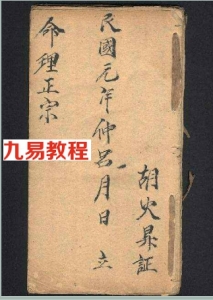 胡火昇証
民國元年仲呂月日 立
命理正宗
九易教程
www.9ebook.com